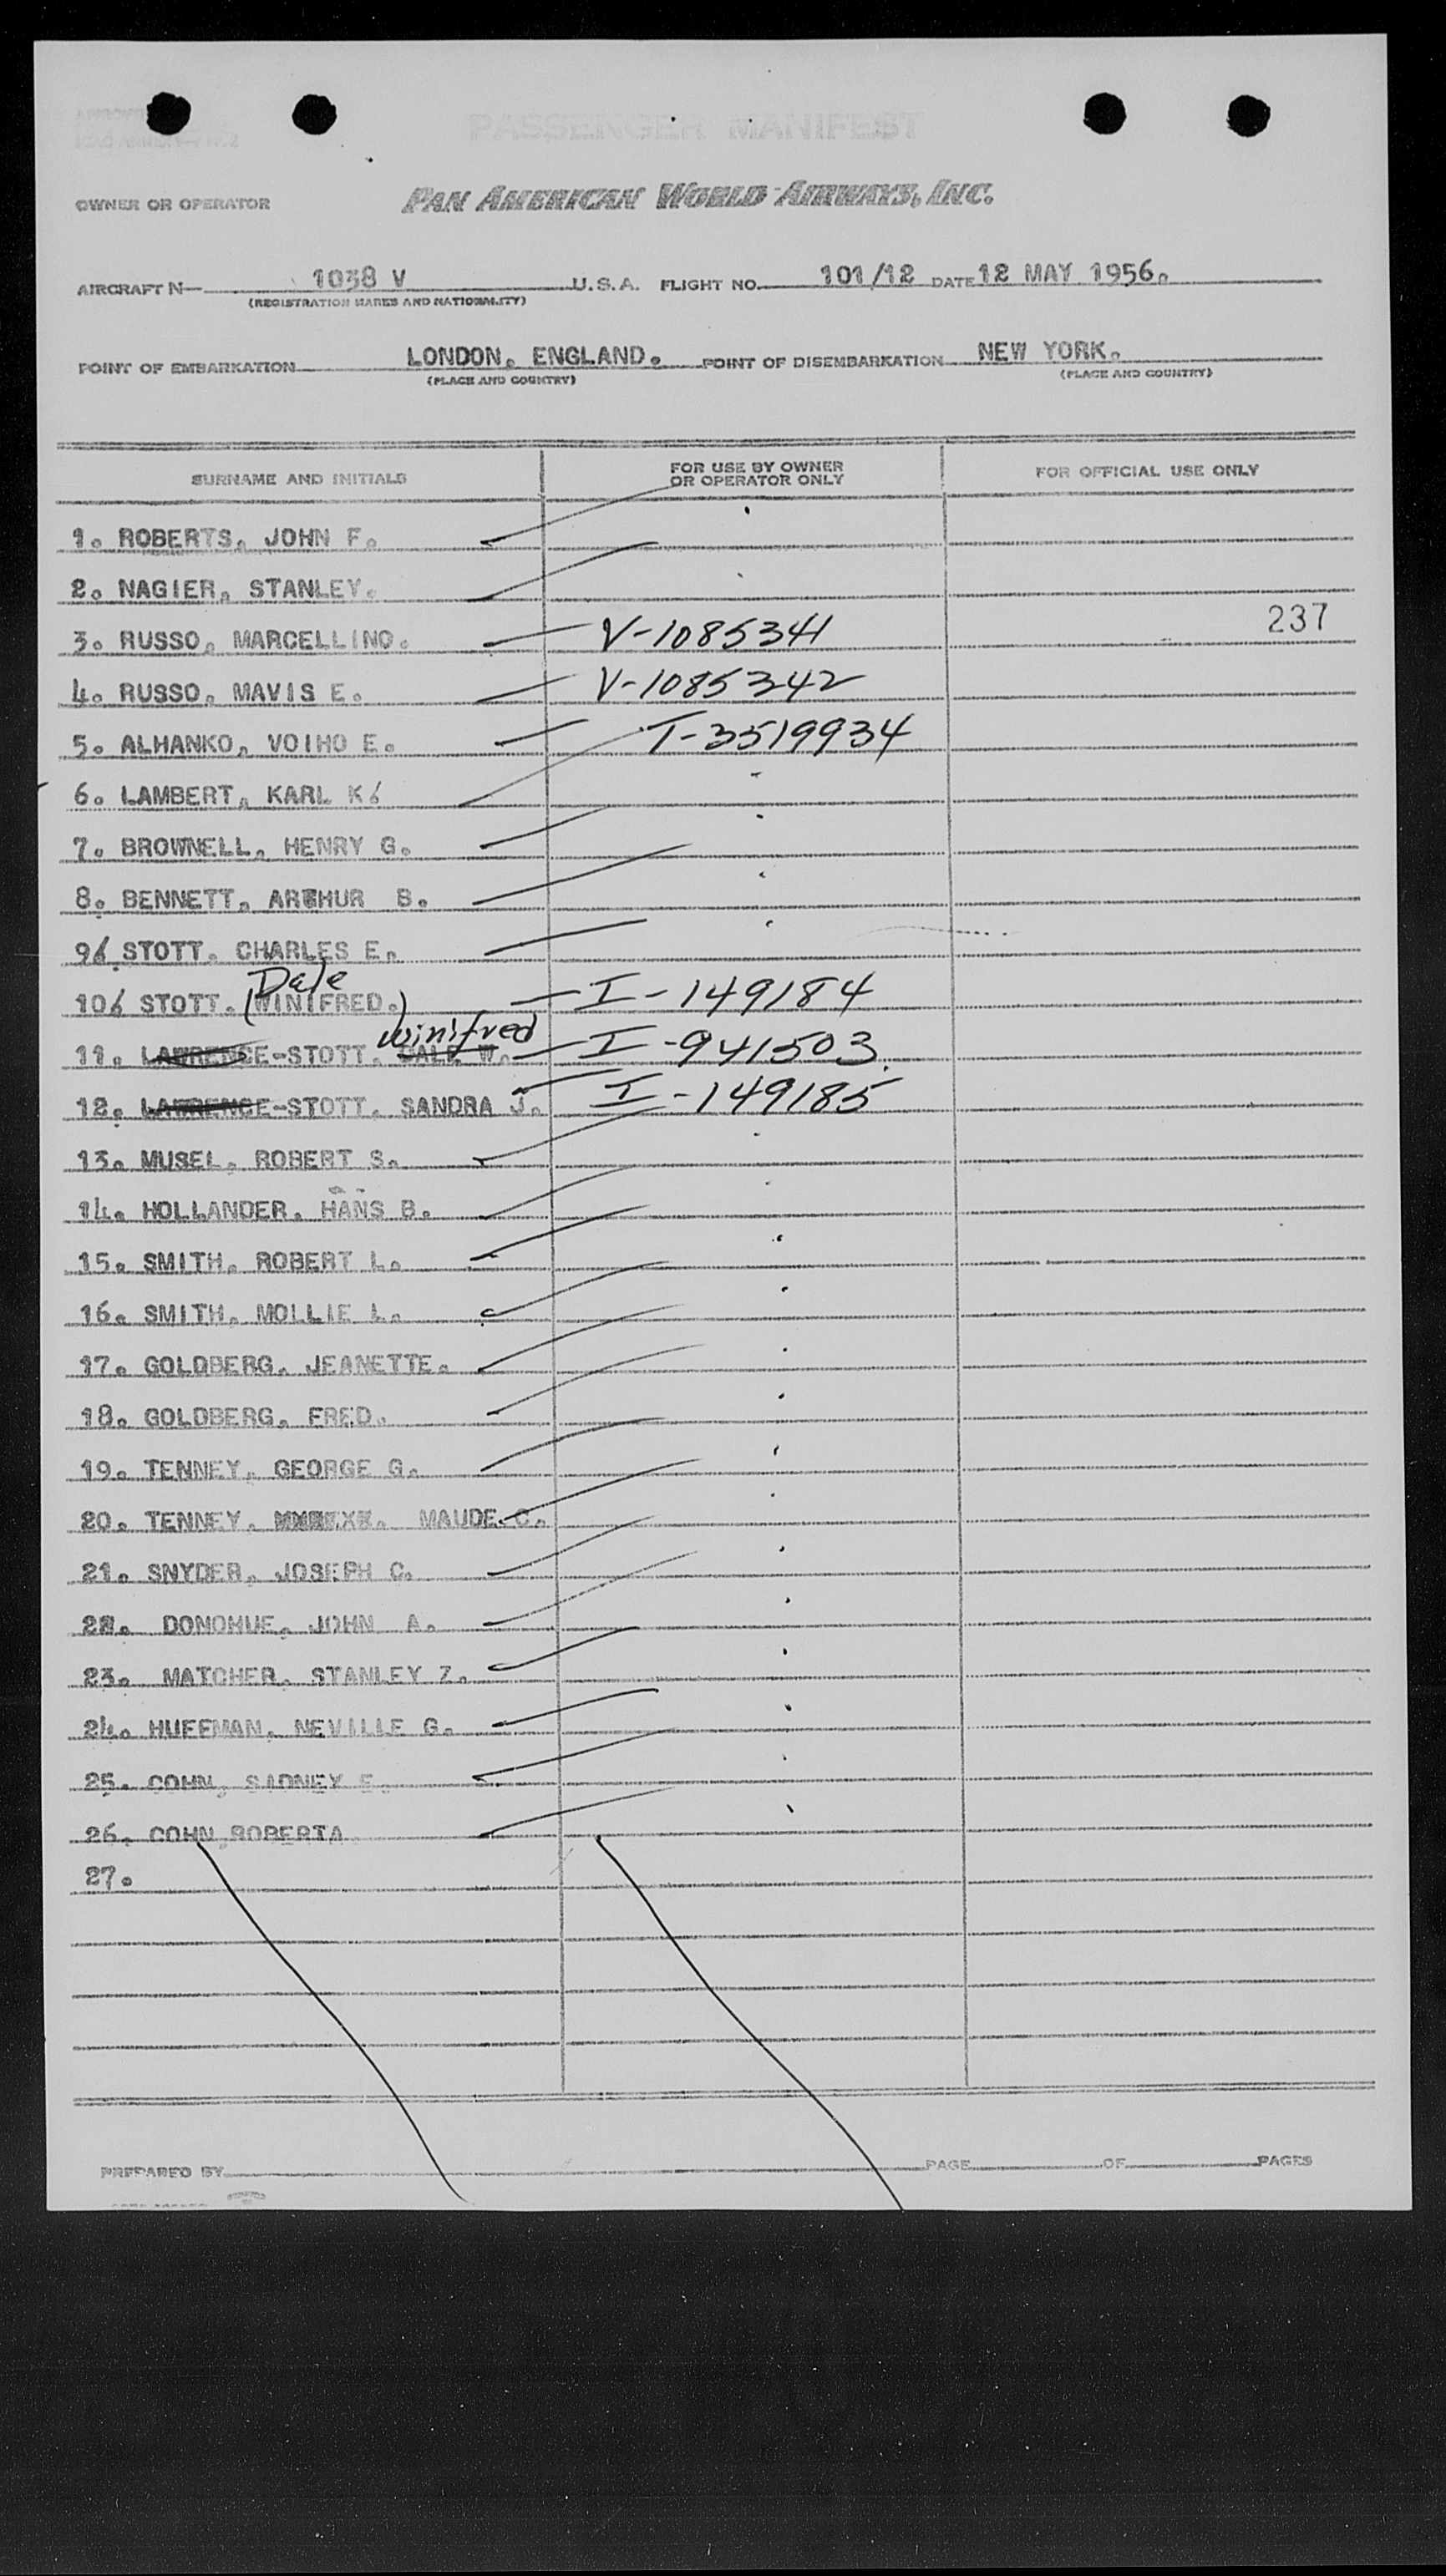 PASSENGER MANIFEST
OWNER OR OPERATOR PAN AMERICAN WORLD AIRWAYS, INC.
AIRCRAFT N— 1038 V U.S.A. FLIGHT NO. 101/12 DATE 12 MAY 1956.
(REGISTRATION MARKS AND NATIONALITY)
POINT OF EMBARKATION LONDON, ENGLAND. POINT OF DISEMBARKATION NEW YORK.
(PLACE AND COUNTRY) (PLACE AND COUNTRY)
SURNAME AND INITIALS FOR USE BY OWNER OR OPERATOR ONLY FOR OFFICIAL USE ONLY
1. ROBERTS, JOHN F.
2. NAGIER, STANLEY.
237
3. RUSSO, MARCELLINO. V-1085341
4. RUSSO, MAVIS E. V-1085342
5. ALHANKO, VOIHO E. T-3519934
6. LAMBERT, KARL K6
7. BROWNELL, HENRY G.
8. BENNETT, ARTHUR B.
96 STOTT, CHARLES E.
Dale
106 STOTT, (WINIFRED.) I-149184
Winifred
11. LAWRENCE-STOTT, DALE W. I-941503
12. LAWRENCE-STOTT, SANDRA J. I-149185
13. MUSEL, ROBERT S.
14. HOLLANDER, HANS B.
15. SMITH, ROBERT L.
16. SMITH, MOLLIE L.
17. GOLDBERG, JEANETTE.
18. GOLDBERG, FRED.
19. TENNEY, GEORGE G.
20. TENNEY, MAUDE C.
21. SNYDER, JOSEPH C.
22. DONOHUE, JOHN A.
23. MATCHER, STANLEY Z.
24. HUFFMAN, NEVILLE G.
25. COHN, SADNEY E.
26. COHN, ROBERTA
27.
PREPARED BY PAGE OF PAGES